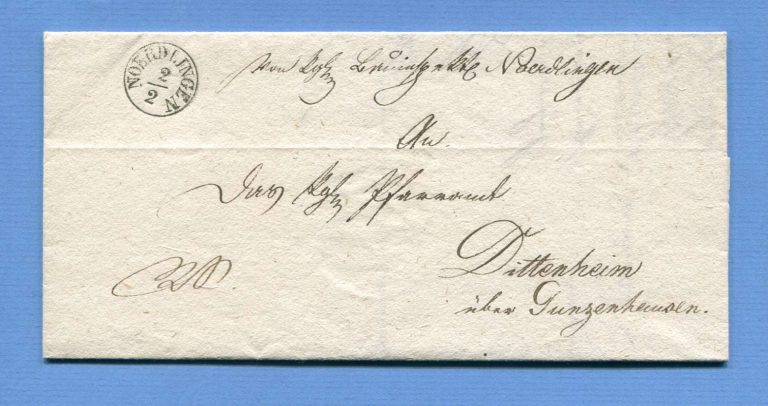 NOERDLINGEN
2/2
Von Kgl. Bauinspektion Noerdlingen
An
Das Kgl. Pfarramt
Dittenheim
über Gunzenhausen.